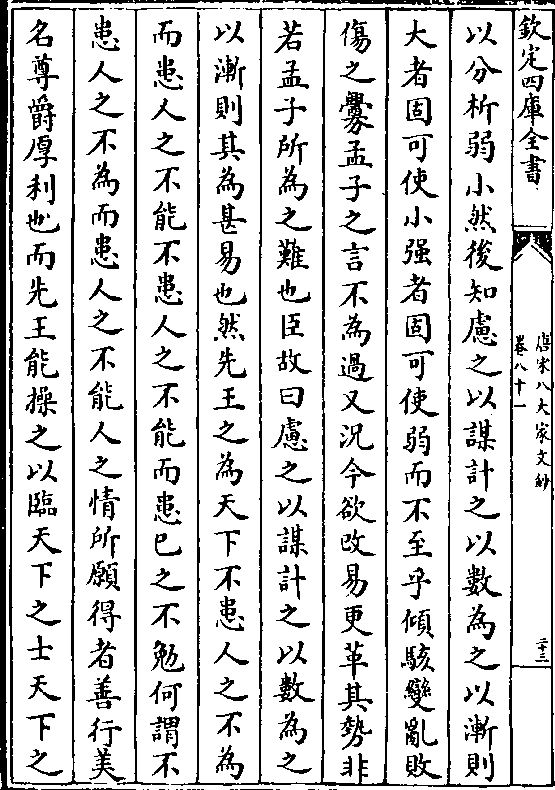 欽定四庫全書
唐宋八大家文鈔
卷八十一
二十三
以分析弱小然後知慮之以謀計之以數為之以漸則
大者固可使小强者固可使弱而不至乎傾駭變亂敗
傷之釁孟子之言不為過又況今欲改易更革其勢非
若孟子所為之難也臣故曰慮之以謀計之以數為之
以漸則其為甚易也然先王之為天下不患人之不為
而患人之不能不患人之不能而患已之不勉何謂不
患人之不為而患人之不能人之情所願得者善行美
名尊爵厚利也而先王能操之以臨天下之士天下之